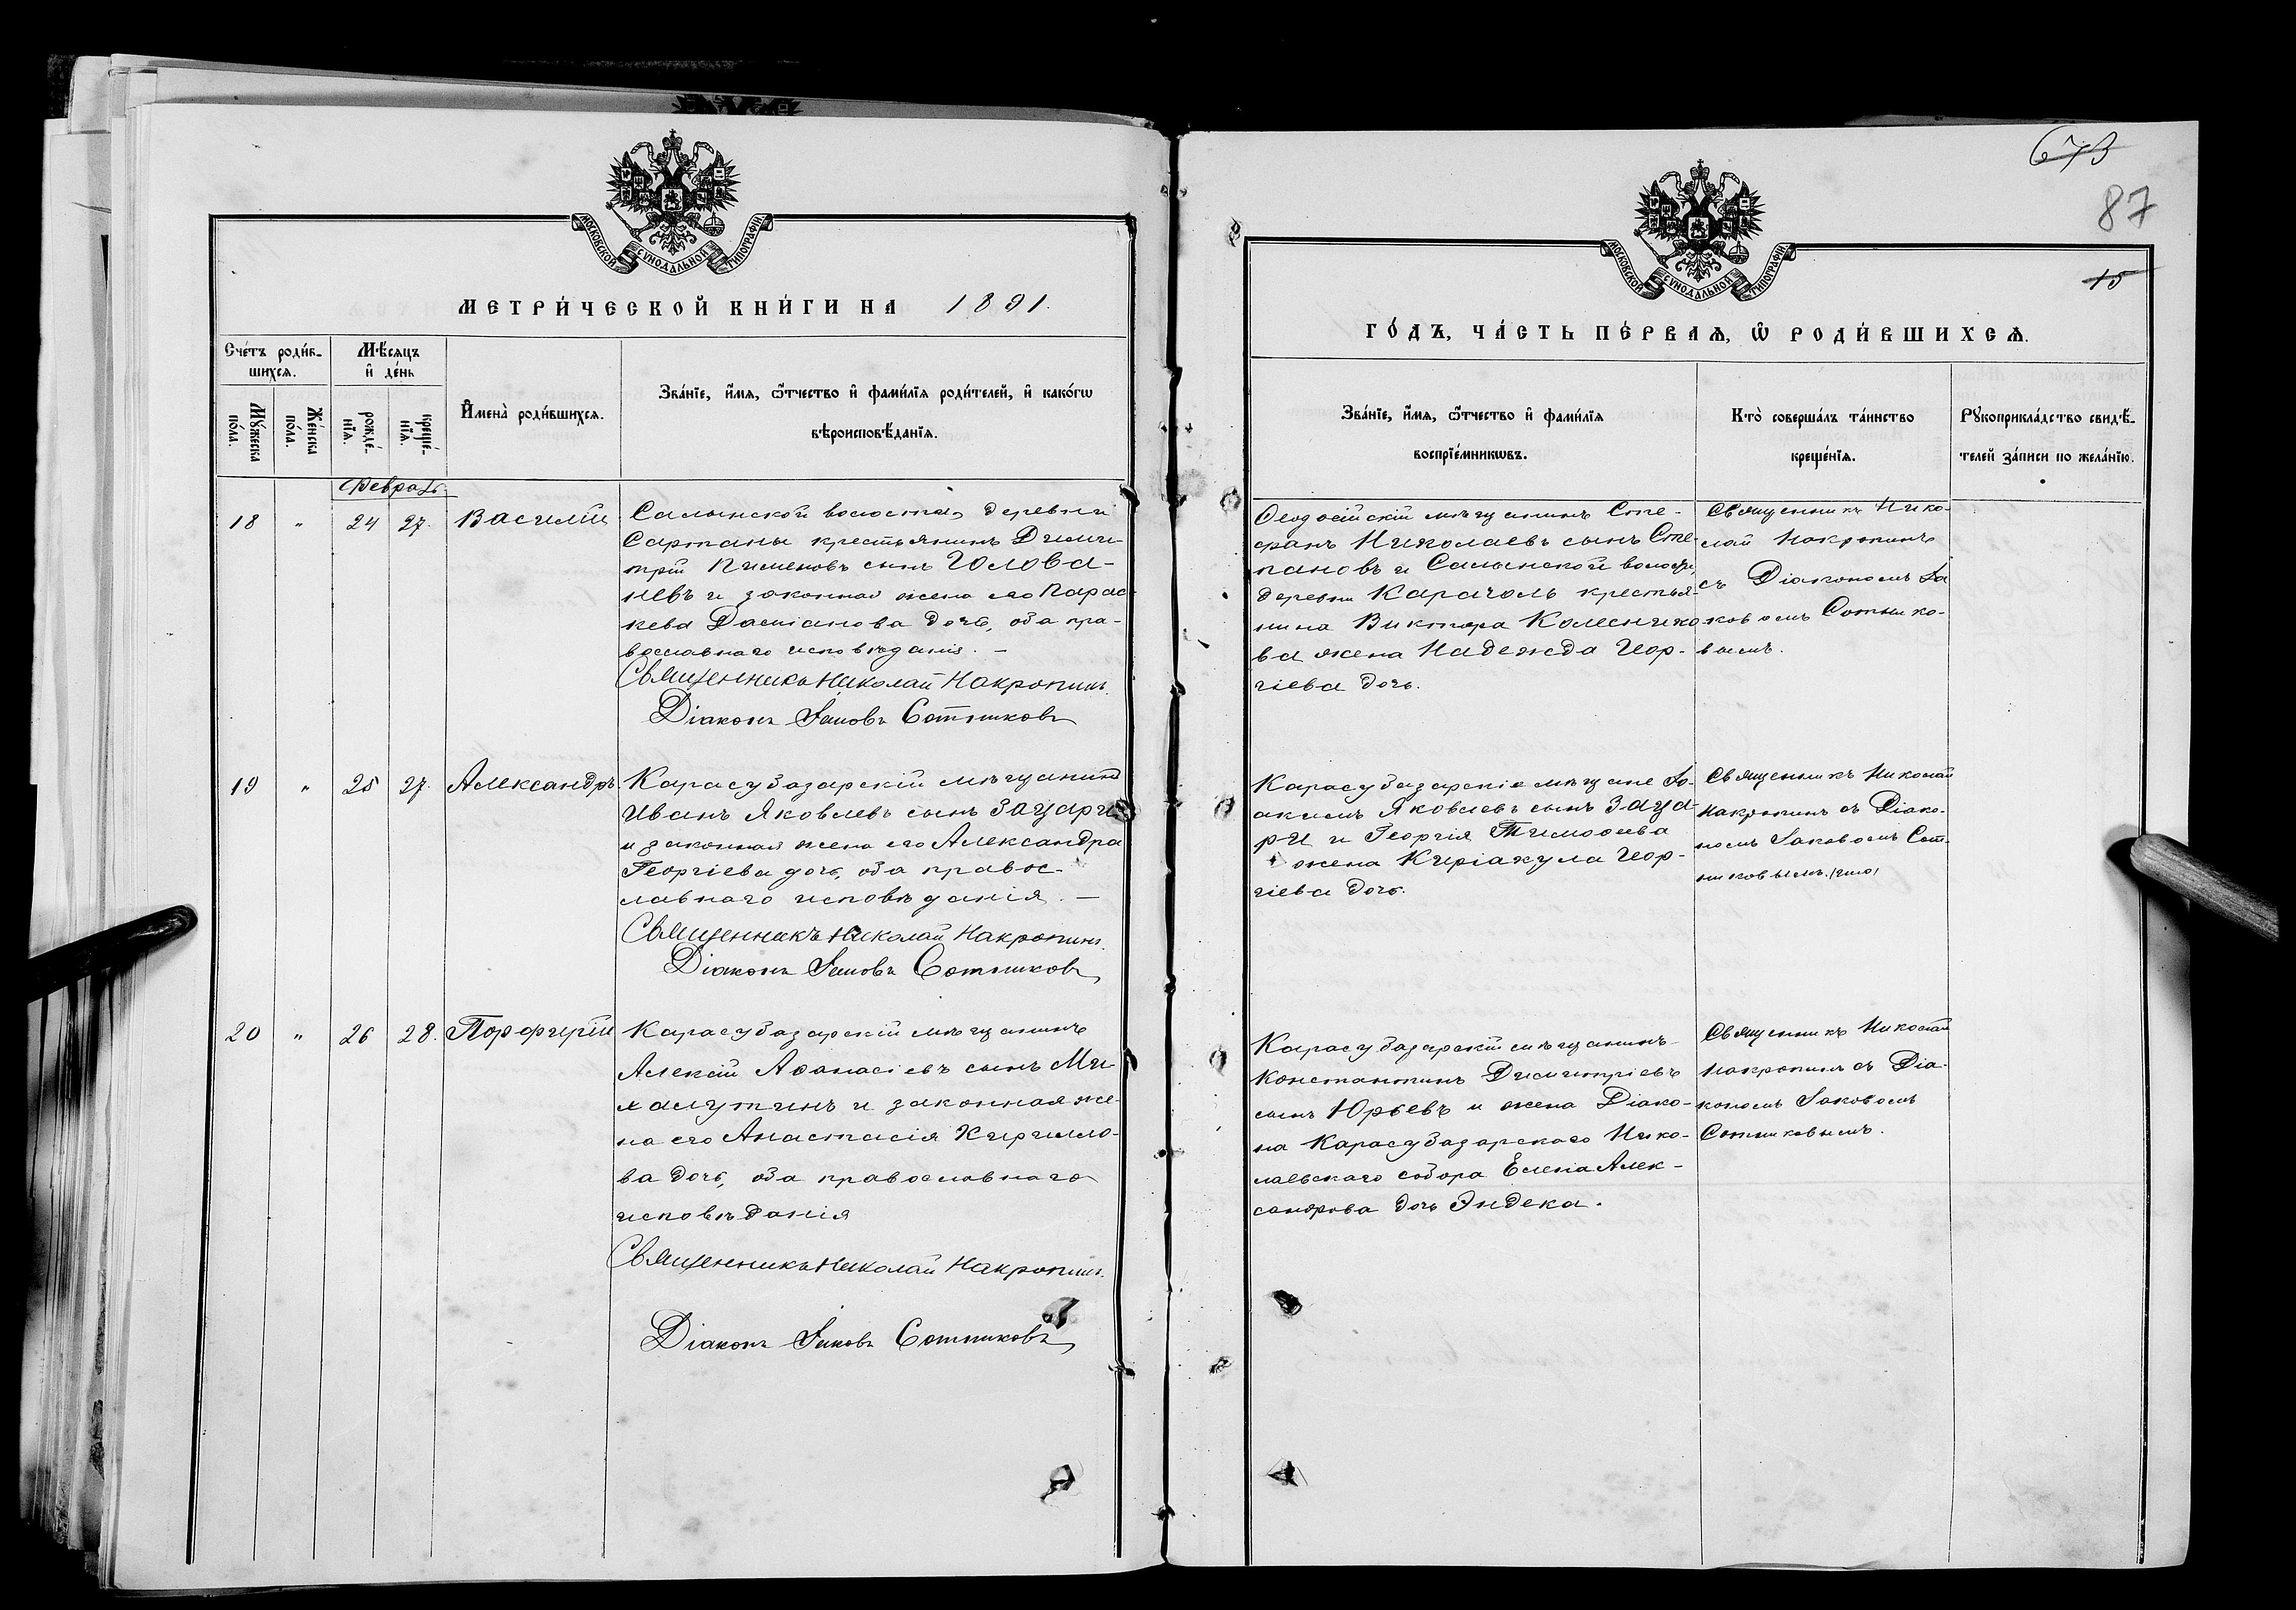 МОСКОВСКОЙ СѴНОДАЛЬНОЙ ТИПОГРАФІИ
МЕТРИ́ЧЕСКОЙ КНИ́ГИ НА 1891.
Сче́тъ роди́в-
шихсѧ.
Мѣ́сѧцъ
и҆ де́нь
Мꙋ́жеска
по́ла.
Же́нска
по́ла.
рожде́-
нїѧ.
креще́-
нїѧ.
И҆мена̀ роди́вшихсѧ.
Зва́нїе, и҆́мѧ, ѻ҆́тчество и҆ фами́лїѧ роди́телей, и҆ како́гѡ
вѣроисповѣ́данїѧ.
Февраль
18 " 24 27. Василій
Салынской волости, деревни
Сартаны крестьянинъ Дими-
трій Пименовъ сынъ Голова-
невъ и законная жена его Парас-
кева Даміанова дочь, оба пра-
вославнаго исповѣданія. —
Священникъ Николай Накропинъ.
Діаконъ Іаковъ Сотниковъ
19 " 25 27. Александръ
Карасубазарскій мѣщанинъ
Иванъ Яковлевъ сынъ Зацари
и законная жена его Александра
Георгіева дочь, оба правос-
лавнаго исповѣданія. —
Священникъ Николай Накропинъ.
Діаконъ Іаковъ Сотниковъ
20 " 26 28. Порфирій
Карасубазарскій мѣщанинъ
Алексій Аѳанасіевъ сынъ Ми-
халутинъ и законная же-
на его Анастасія Кирилло-
ва дочь, оба православнаго
исповѣданія
Священникъ Николай Накропинъ.
Діаконъ Іаковъ Сотниковъ
673
87
15
МОСКОВСКОЙ СѴНОДАЛЬНОЙ ТИПОГРАФІИ
ГО́ДЪ, ЧА́СТЬ ПЕ́РВАѦ, Ѡ҆ РОДИ́ВШИХСѦ.
Зва́нїе, и҆́мѧ, ѻ҆́тчество и҆ фами́лїѧ
воспрїе́мникѡвъ.
Кто̀ соверша́лъ та́инство
креще́нїѧ.
Рꙋкоприкла́дство свидѣ́-
телей за́писи по жела́нїю.
Ѳеодосійскій мѣщанинъ Сте-
фанъ Николаевъ сынъ Сте-
пановъ и Салынской волости,
деревни Карачоль крестья-
нина Виктора Колеснико
ва жена Надежда Геор-
гіева дочь.
Священникъ Нико-
лай Накропинъ
съ Діакономъ Іа
ковомъ Сотнико-
вымъ.
Карасубазарскіе мѣщане Іо-
акимъ Яковлевъ сынъ Заца-
ри и Георгія Тимоѳеева
жена Киріакула Геор-
гіева дочь.
Священникъ Николай
Накропинъ съ Діако-
номъ Іаковомъ Сот-
никовымъ.
Карасубазарскій мѣщанинъ
Константинъ Димитріевъ
сынъ Юрьевъ и жена Діако-
на Карасубазарскаго Нико-
лаевскаго собора Елена Алек-
сандрова дочь Эндека.
Священникъ Николай
Накропинъ съ Діа-
кономъ Іаковомъ
Сотниковымъ.